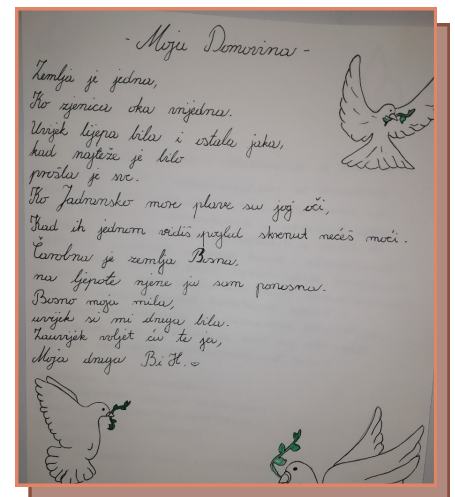 - Moja Domovina -
Zemlja je jedna,
Ko zjenica oka vrijedna.
Uvijek lijepa bila i ostala jaka,
kad najteže je bilo
prošla je sve.
Ko Jadransko more plave su joj oči,
Kad ih jednom vidiš pogled skrenut nećeš moći.
Čarobna je zemlja Bosna.
na ljepote njene ja sam ponosna.
Bosno moja mila,
uvijek si mi draga bila.
Zauvijek voljet ću te ja,
Moja draga BiH.